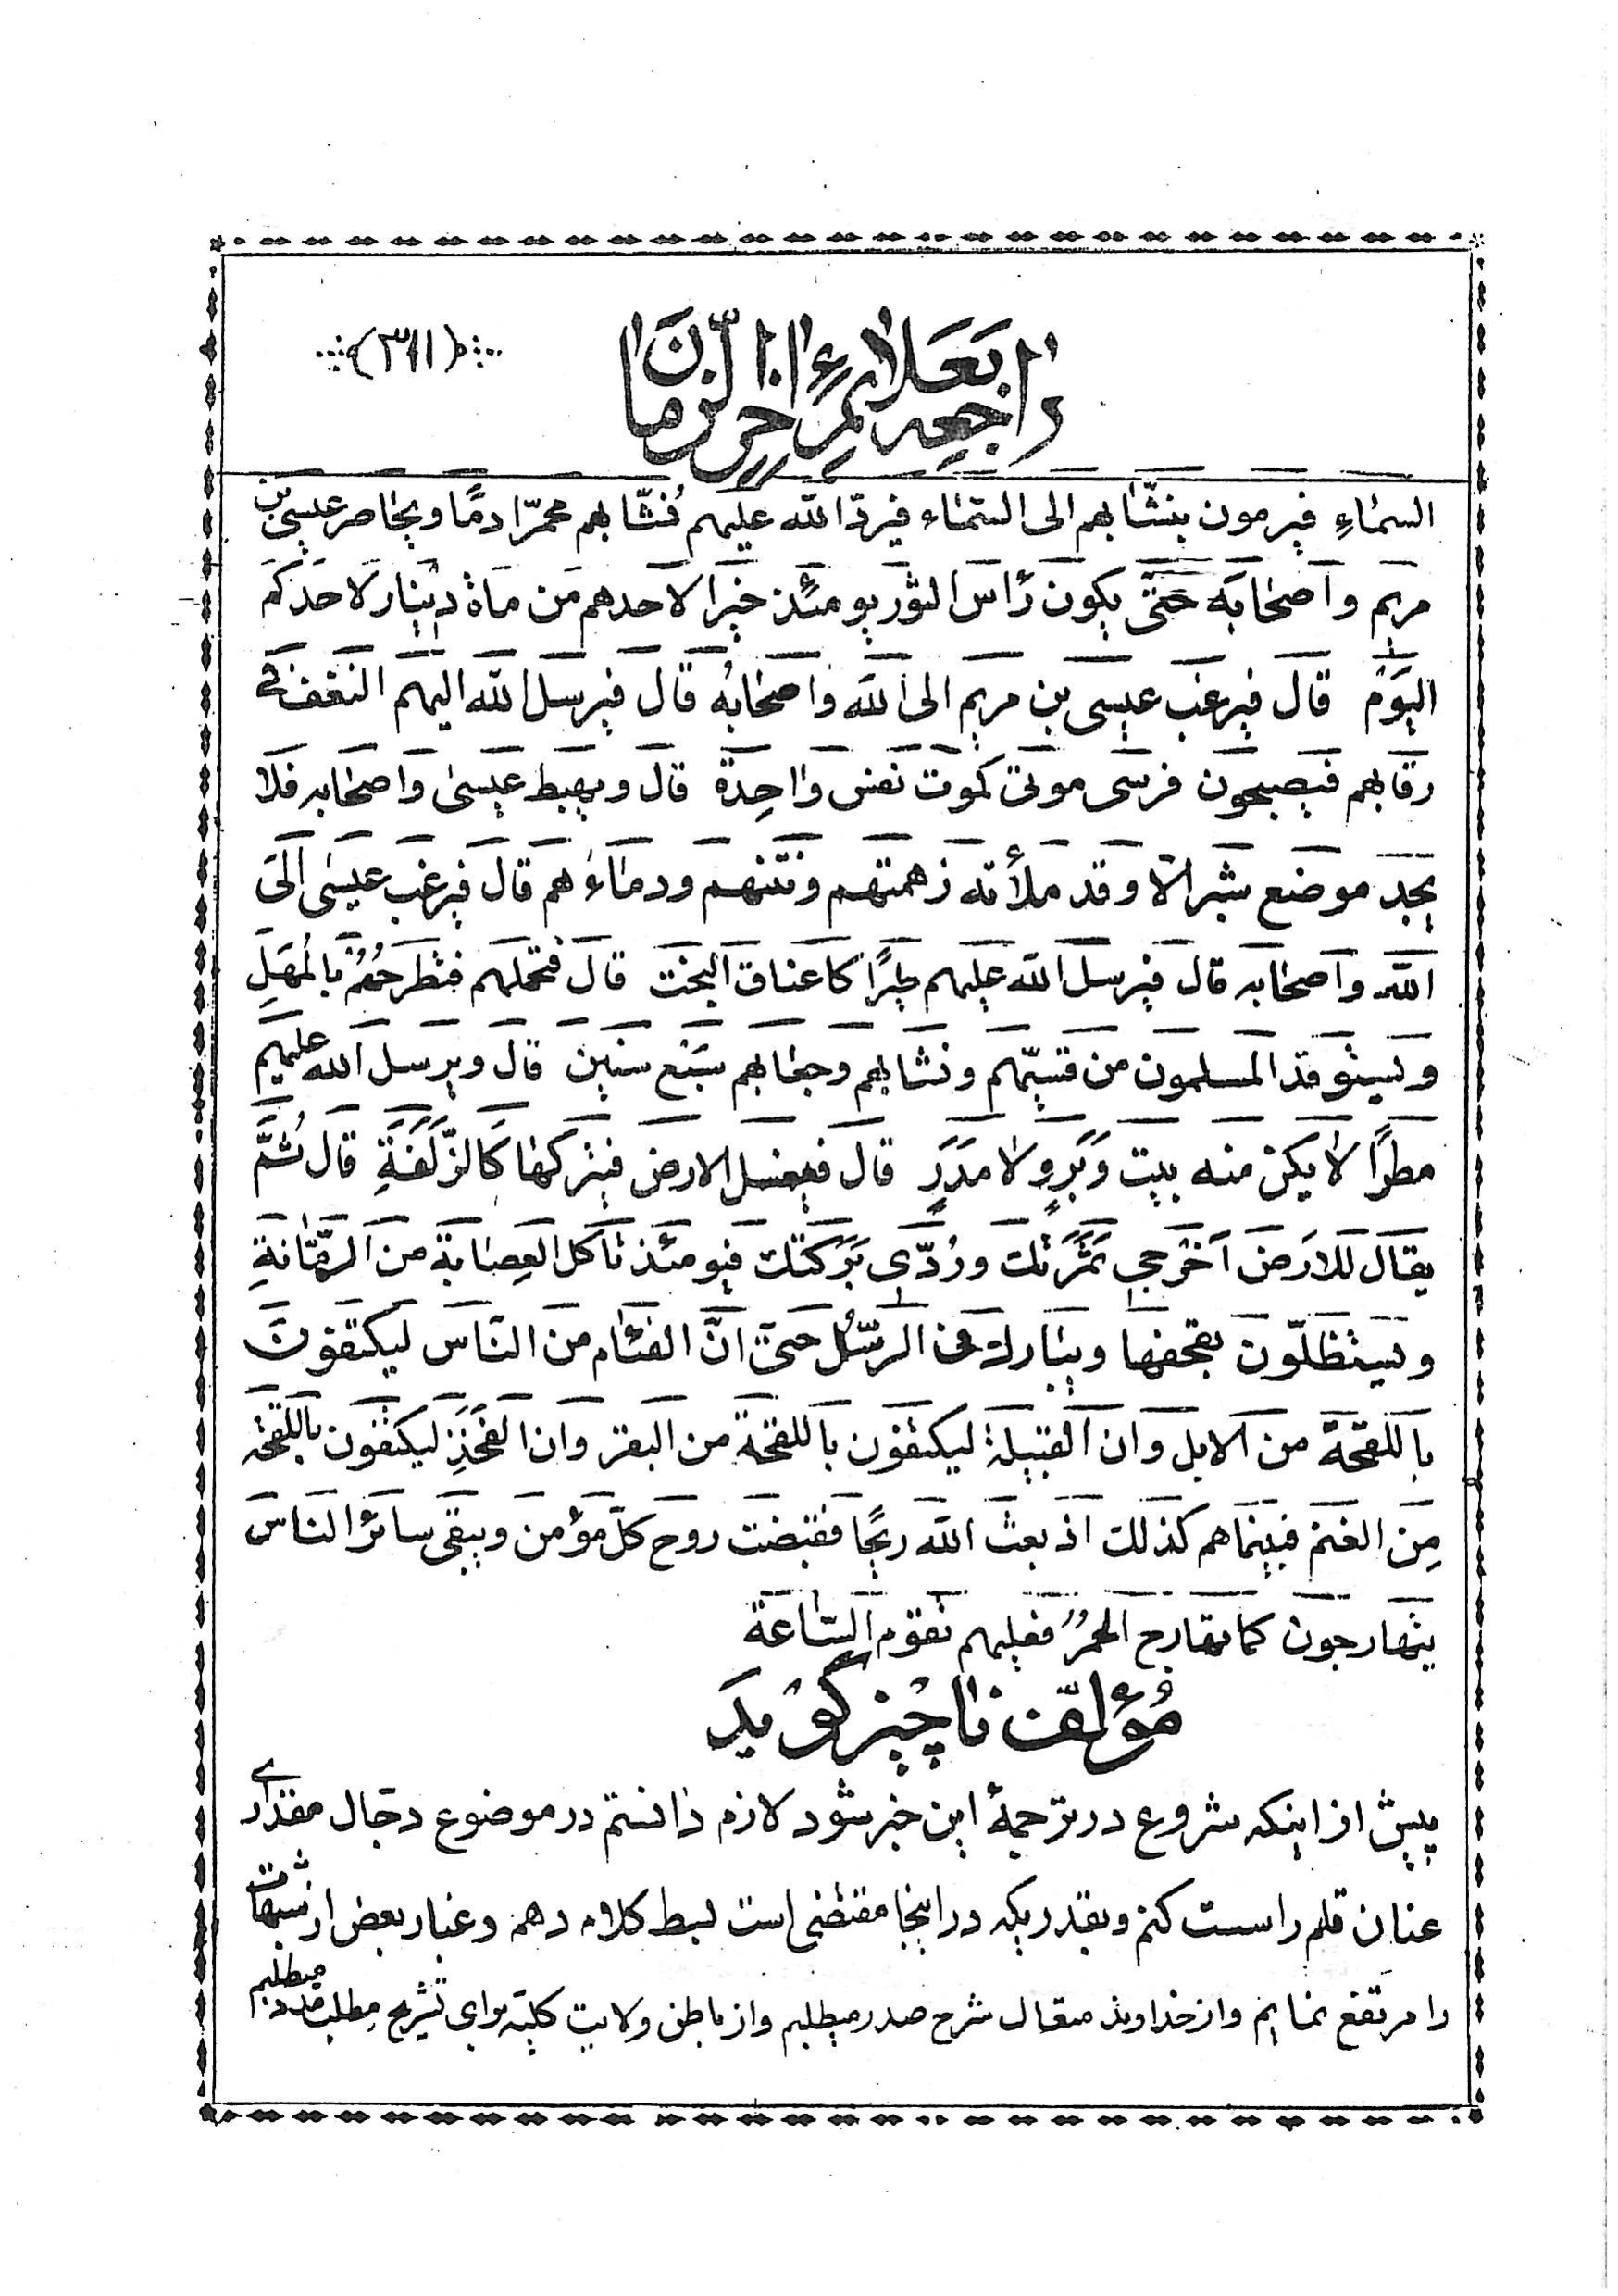 راجعه بعلائم آخر الزمان
(٣١١)
السماءِ فیرمون بنشّابهم الی السّماء فیردّ الله علیهم نُشّابهم محمرّا دمًا ویحاصر عیسی بن
مریم واصحابه حتّی یکون رأس الثور یومئذ خیرا لاحدهم من مأة دینار لاحدکم
الیوم قال فیرغب عیسی بن مریم الی الله واصحابُه قال فیرسل الله الیهم النغف فی
رقابهم فیصبحون فرسی موتی کموت نفس واحِدة قال ویهبط عیسی واصحابه فلا
یجد موضع شبر الّا وقد ملأته زهمتهم ونتنهم ودماءُهم قال فیرغب عیسی الی
الله واصحابه قال فیرسل الله علیهم طیرًا کاعناق البخت قال فتحملهم فتطرحُهُم بالمُهَبِل
ویستوقد المسلمون من قسیّهم ونشابهم وجعابهم سَبْع سنین قال ویرسل الله علیهم
مطرًا لا یکن منه بیت وَبَرٍ ولا مَدَرٍ قال فیغسل الارض فیترکها کالزّلَفَةِ قال ثُمَّ
یقال للارض اَخرجی ثَمَرَتك ورُدّی بَرَکتك فیومئذ تأکل العِصابة من الرّمّانةِ
ویستظلّون بقحفها ویبارك فی الرّسْل حتّی انّ الفئام من النّاس لیکتفون
باللقحة من الابل وان القبیلة لیکتفون باللقحة من البقر وان الفَخِذِ لیکتفون باللقحة
مِن الغنم فبینما هم کذلك اذ بعث الله ریحًا فقبضت روح کلّ مؤمن ویبقی سائر الناس
یتهارجون کما تهارج الحُمُرُ فعلیهم تقوم السّاعة
مُؤلّف ناچیز گوید
پیش از اینکه شروع در ترجمهٔ این خبر شود لازم دانستم در موضوع دجّال مقداری
عنان قلم را سست کنم وبقدریکه در اینجا مقتضی است بسط کلام دهم وغبار بعض از شبهات
را مرتفع نمایم واز خداوند متعال شرح صدر میطلبم واز باطن ولایت کلیّه برای تشریح مطلب مدد میطلبم